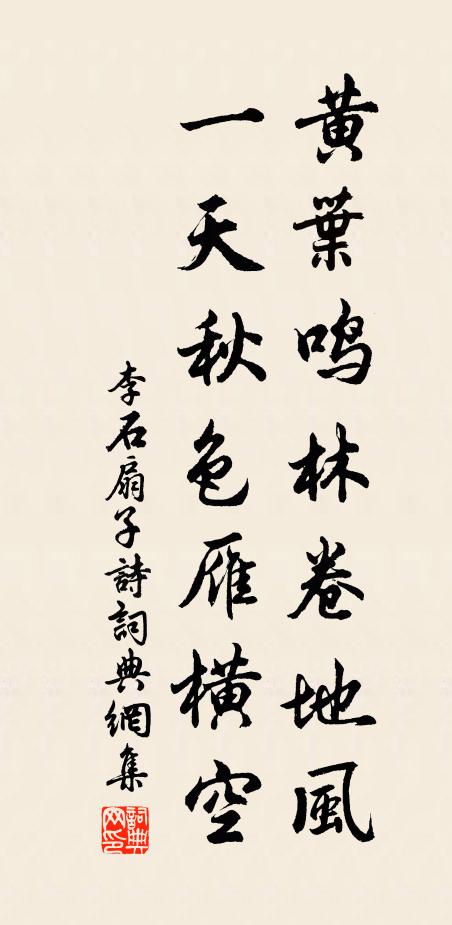 黄葉鸣林卷地風
一天秋色雁横空
李石扇子詩詞典網集
詞典網印